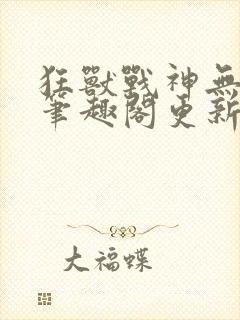 狂獸戰神無
筆趣閣更新
大福蝶